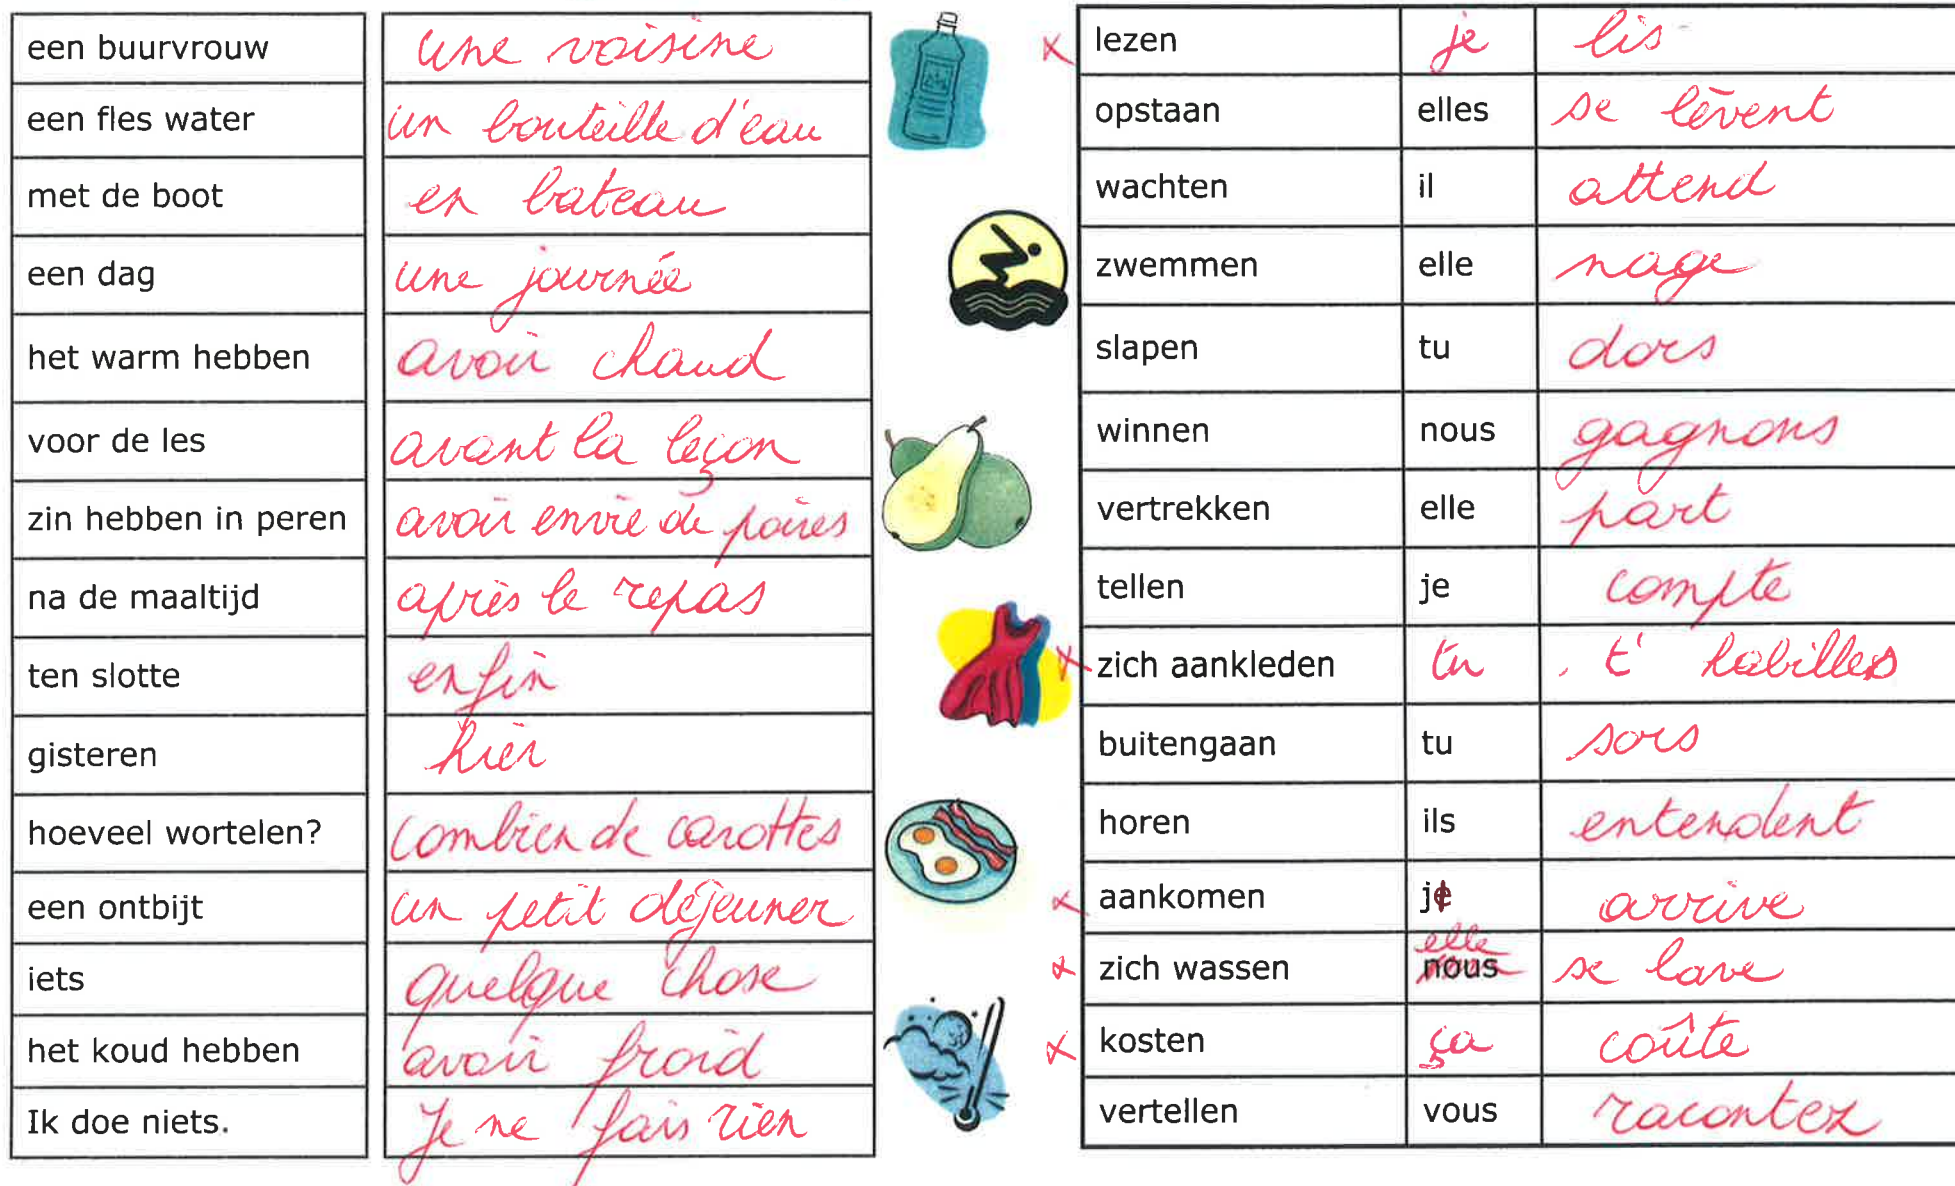 een buurvrouw une voisine
een fles water un bouteille d'eau
met de boot en bateau
een dag une journée
het warm hebben avoir chaud
voor de les avant la leçon
zin hebben in peren avoir envie de poires
na de maaltijd après le repas
ten slotte enfin
gisteren hier
hoeveel wortelen? combien de carottes
een ontbijt un petit déjeuner
iets quelque chose
het koud hebben avoir froid
Ik doe niets. Je ne fais rien
x lezen je lis
opstaan elles se lèvent
wachten il attend
zwemmen elle nage
slapen tu dors
winnen nous gagnons
vertrekken elle part
tellen je compte
x zich aankleden tu t'habilles
buitengaan tu sors
horen ils entendent
x aankomen j' arrive
x zich wassen elle nous se lave
x kosten ça coûte
vertellen vous racontez